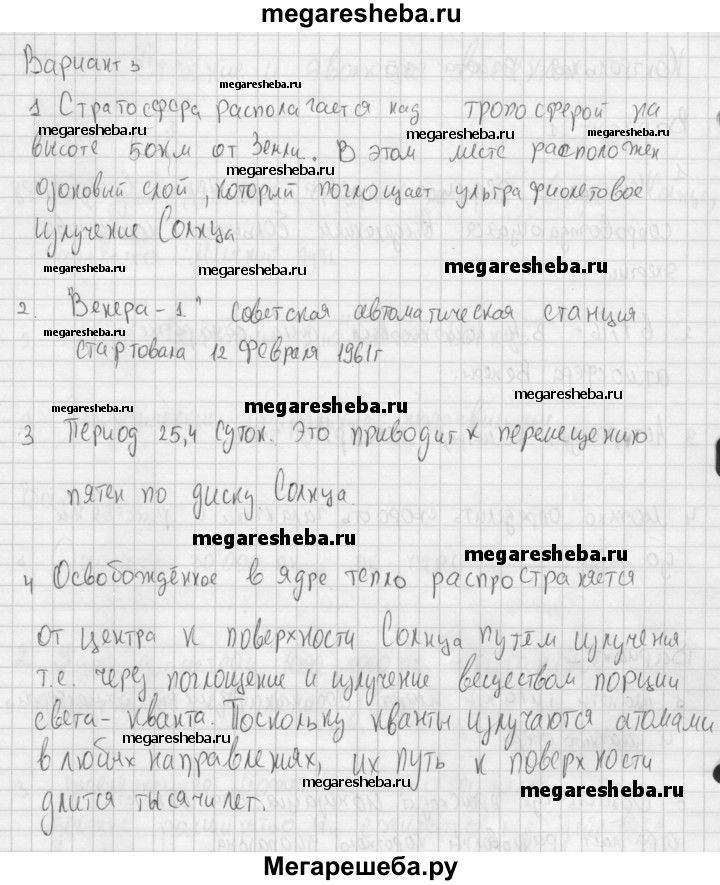 megaresheba.ru
Вариант 3
megaresheba.ru
1 Стратосфера располагается над тропосферой на
megaresheba.ru megaresheba.ru megaresheba.ru
высоте 50км от Земли. В этом месте расположен
megaresheba.ru
озоновый слой, который поглощает ультрафиолетовое
излучение Солнца
megaresheba.ru megaresheba.ru megaresheba.ru
2. "Венера-1" советская автоматическая станция
megaresheba.ru
стартовала 12 февраля 1961г
megaresheba.ru megaresheba.ru megaresheba.ru
3 Период 25,4 суток. Это приводит к перемещению
пятен по диску Солнца.
megaresheba.ru megaresheba.ru
4 Освобождённое в ядре тепло распространяется
от центра к поверхности Солнца путём излучения
т.е. через поглощение и излучение веществом порции
света-кванта. Поскольку кванты излучаются атомами
megaresheba.ru
в любых направлениях, их путь к поверхности
megaresheba.ru megaresheba.ru
длится тысячи лет.
megaresheba.ru
Мегарешеба.ру